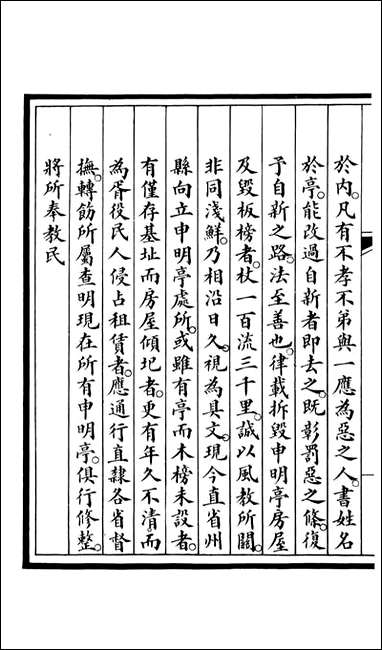 於內。凡有不孝不弟與一應為惡之人。書姓名
於亭。能改過自新者即去之。既彰罰惡之條。復
予自新之路。法至善也。律載折毀申明亭房屋
及毀板榜者。杖一百流三千里。誠以風教所關。
非同淺鮮。乃相沿日久。視為具文。現今直省州
縣向立申明亭處所。或雖有亭而木榜未設者。
有僅存基址而房屋傾圮者。更有年久不清。而
為胥役民人侵占租賃者。應通行直隸各省督
撫。轉飭所屬查明現在所有申明亭。俱行修整。
將所奉教民